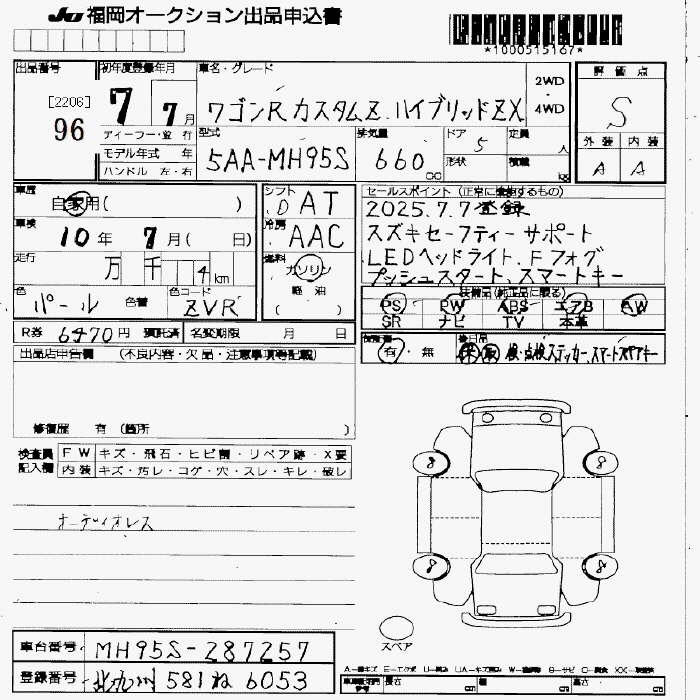 JU 福岡オークション出品申込書
*1000515167*
出品番号
[2206]
96
初年度登録年月
7 7月
ディーラー・並行
モデル年式 年
ハンドル 左・右
車名・グレード
ワゴンR カスタムZ ハイブリッドZX
2WD
・
4WD
型式
5AA-MH95S
排気量
660 cc
ドア
5
形状
定員
人
積載
kg
評価点
S
外装 内装
A A
車歴
自家用( )
車検
10年 7月( 日)
走行
万 千 4 km
色
パール 色替
色コード
ZVR
シフト
D AT
冷房
AAC
燃料
ガソリン
軽油
( )
セールスポイント (正常に機能するもの)
2025.7.7登録
スズキセーフティーサポート
LEDヘッドライト、Fフォグ
プッシュスタート、スマートキー
装備品(純正品に限る)
PS PW ABS エアB AW
SR ナビ TV 本革
R券 6470円 預託済 名変期限 月 日
有・無
後日品
保 取 検・点検ステッカー、スマートスペアキー
出品店申告欄 (不良内容・欠品・注意事項等記載)
修復歴 有 (箇所 )
検査員
記入欄
FW キズ・飛石・ヒビ割・リペア跡・X要
内装 キズ・汚レ・コゲ・穴・スレ・キレ・破レ
オーディオレス
8 8
8 8
スペア
車台番号 MH95S-287257
登録番号 北九州 581 ね 6053
長さ cm 幅 cm 高さ cm